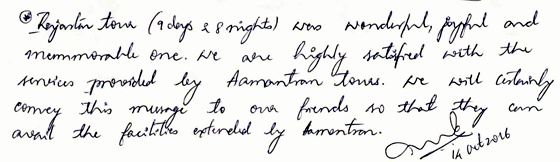 * Rajasthan tour (9 days & 8 nights) was wonderful, joyful and
memmorable one. We are highly satisfied with the
services provided by Aamantran tours. We will certainly
convey this message to our friends so that they can
avail the facilities extended by Aamantran.
14 Oct 2016